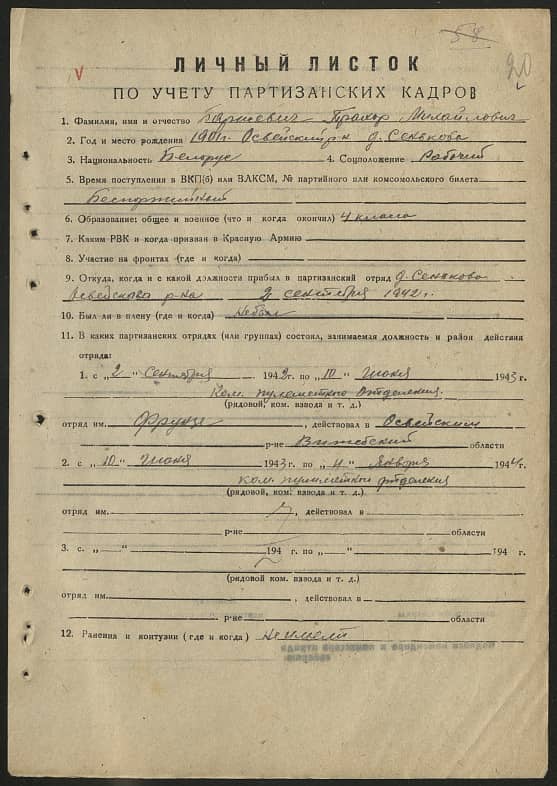 58
20
V
ЛИЧНЫЙ ЛИСТОК
ПО УЧЕТУ ПАРТИЗАНСКИХ КАДРОВ
1. Фамилия, имя и отчество Михайлович
2. Год и место рождения 1901г. Освейский р-н д. Сеньково
3. Национальность Белорус 4. Соцположение Рабочий
5. Время поступления в ВКП(б) или ВЛКСМ, № партийного или комсомольского билета
Беспартийный
6. Образование: общее и военное (что и когда окончил) 4 класса
7. Каким РВК и когда призван в Красную Армию
8. Участие на фронтах (где и когда)
9. Откуда, когда и с какой должности прибыл в партизанский отряд д. Сеньково
Освейского р-на 2 сентября 1942 г.
10. Был ли в плену (где и когда) Не был
11. В каких партизанских отрядах (или группах) состоял, занимаемая должность и район действия
отряда:
1. с „2" Сентября 1942 г. по „10" Июня 1943 г.
Ком. пулеметного отделения.
(рядовой, ком. взвода и т. д.)
отряд им. Фрунзе, действовал в Освейским
р-не Витебский области
2. с „10" Июня 1943 г. по „4" Января 1944 г.
ком. пулиметной отделения
(рядовой, ком. взвода и т. д.)
отряд им. , действовал в
р-не области
3. с „ " 194 г. по „ " 194 г.
(рядовой ком. взвода и т. д.)
отряд им. , действовал в
р-не области
12. Ранения и контузии (где и когда) Не имел